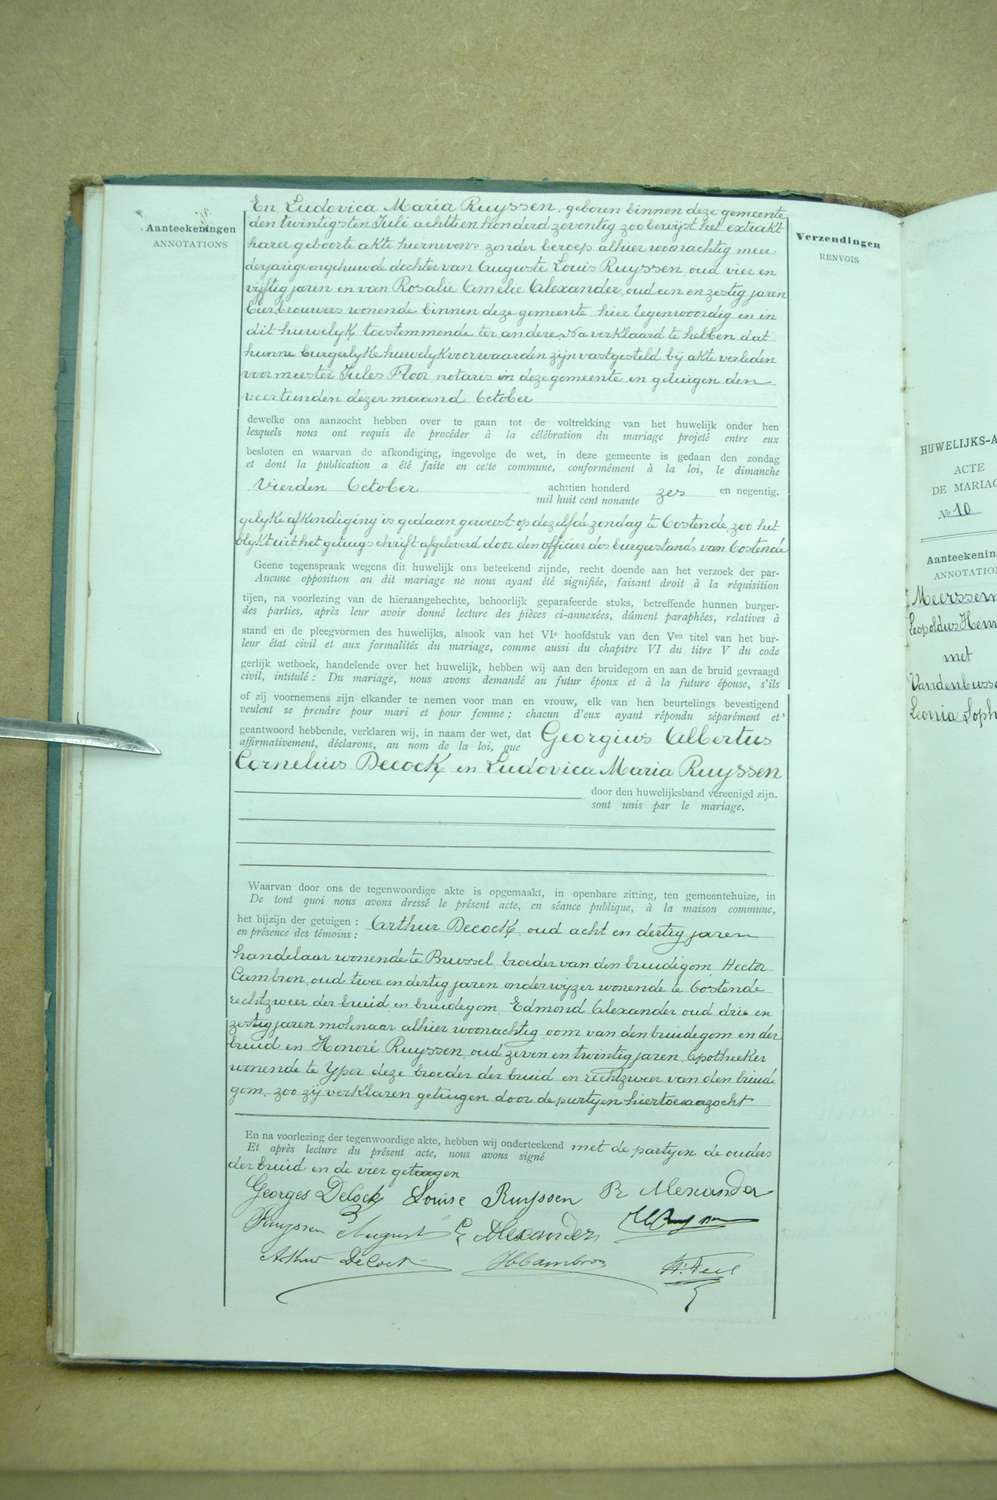 En Ludovica Maria Ruyssen, geboren binnen deze gemeente
Aanteekeningen
ANNOTATIONS
den twintigsten Juli achttien honderd zeventig zoo bewijst het extrakt
harer geboorte akte hiernevens zonder beroep alhier woonachtig meer
derjarige ongehuwde dochter van Auguste Louis Ruyssen oud vier en
vijftig jaren en van Rosalie Amelie Alexander, oud een en zestig jaren
bierbrouwers wonende binnen deze gemeente hier tegenwoordig en in
dit huwelyk toestemmende ter andere, Na verklaard te hebben dat
hunne burgerlyke huwelykvoorwaarden zijn vastgesteld bij akte verleden
voor meester Jules Floor notaris in deze gemeente en getuigen den
veertienden dezer maand October
Verzendingen
RENVOIS
dewelke ons aanzocht hebben over te gaan tot de voltrekking van het huwelijk onder hen
lesquels nous ont requis de procéder à la célébration du mariage projeté entre eux
besloten en waarvan de afkondiging, ingevolge de wet, in deze gemeente is gedaan den zondag
et dont la publication a été faite en cette commune, conformément à la loi, le dimanche
Vierden October achttien honderd zes en negentig,
mil huit cent nonante
gelyke afkondiging is gedaan geweest op dezelfde zondag te Oostende, zoo het
blykt uit het getuigschrift afgeleverd door den officier des burgerstands van Oostende
Geene tegenspraak wegens dit huwelijk ons beteekend zijnde, recht doende aan het verzoek der par-
Aucune opposition au dit mariage ne nous ayant été signifiée, faisant droit à la réquisition
tijen, na voorlezing van de hieraangehechte, behoorlijk geparafeerde stuks, betreffende hunnen burger-
des parties, après leur avoir donné lecture des pièces ci-annexées, dûment paraphées, relatives à
stand en de pleegvormen des huwelijks, alsook van het VIe hoofdstuk van den Ven titel van het bur-
leur état civil et aux formalités du mariage, comme aussi du chapitre VI du titre V du code
gerlijk wetboek, handelende over het huwelijk, hebben wij aan den bruidegom en aan de bruid gevraagd
civil, intitulé : Du mariage, nous avons demandé au futur époux et à la future épouse, s'ils
of zij voornemens zijn elkander te nemen voor man en vrouw, elk van hen beurtelings bevestigend
veulent se prendre pour mari et pour femme ; chacun d'eux ayant répondu séparément et
geantwoord hebbende, verklaren wij, in naam der wet, dat Georgius Albertus
affirmativement, déclarons, au nom de la loi, que
Cornelius Decock en Ludovica Maria Ruyssen
door den huwelijksband vereenigd zijn.
sont unis par le mariage.
Waarvan door ons de tegenwoordige akte is opgemaakt, in openbare zitting, ten gemeentehuize, in
De tout quoi nous avons dressé le présent acte, en séance publique, à la maison commune,
het bijzijn der getuigen : Arthur Decock oud acht en dertig jaren
en présence des témoins :
handelaar wonende te Brussel broeder van den bruidigom, Hector
Cambron, oud twee en dertig jaren onderwyzer wonende te Oostende
rechtzweer der bruid en bruidegom Edmond Alexander oud drie en
zestig jaren molenaar alhier woonachtig oom van den bruidegom en der
bruid en Honoré Ruyssen oud zeven en twintig jaren, Apotheeker
wonende te Yper deze broeder der bruid en rechtzweer van den bruide
gom, zoo zij verklaren getuigen door de partyen hiertoe aazocht
En na voorlezing der tegenwoordige akte, hebben wij onderteekend met de partyen de ouders
Et après lecture du présent acte, nous avons signé
der bruid en de vier getuigen
Georges Decock Louise Ruyssen R Alexander
Ruyssen August E Alexander
Arthur DeCock H Cambron
HUWELIJKS-A
ACTE
DE MARIAG
No 10
Aanteekenin
ANNOTATION
Meerssem
Leopoldus Hen
met
Vandenbussc
Leonia Soph